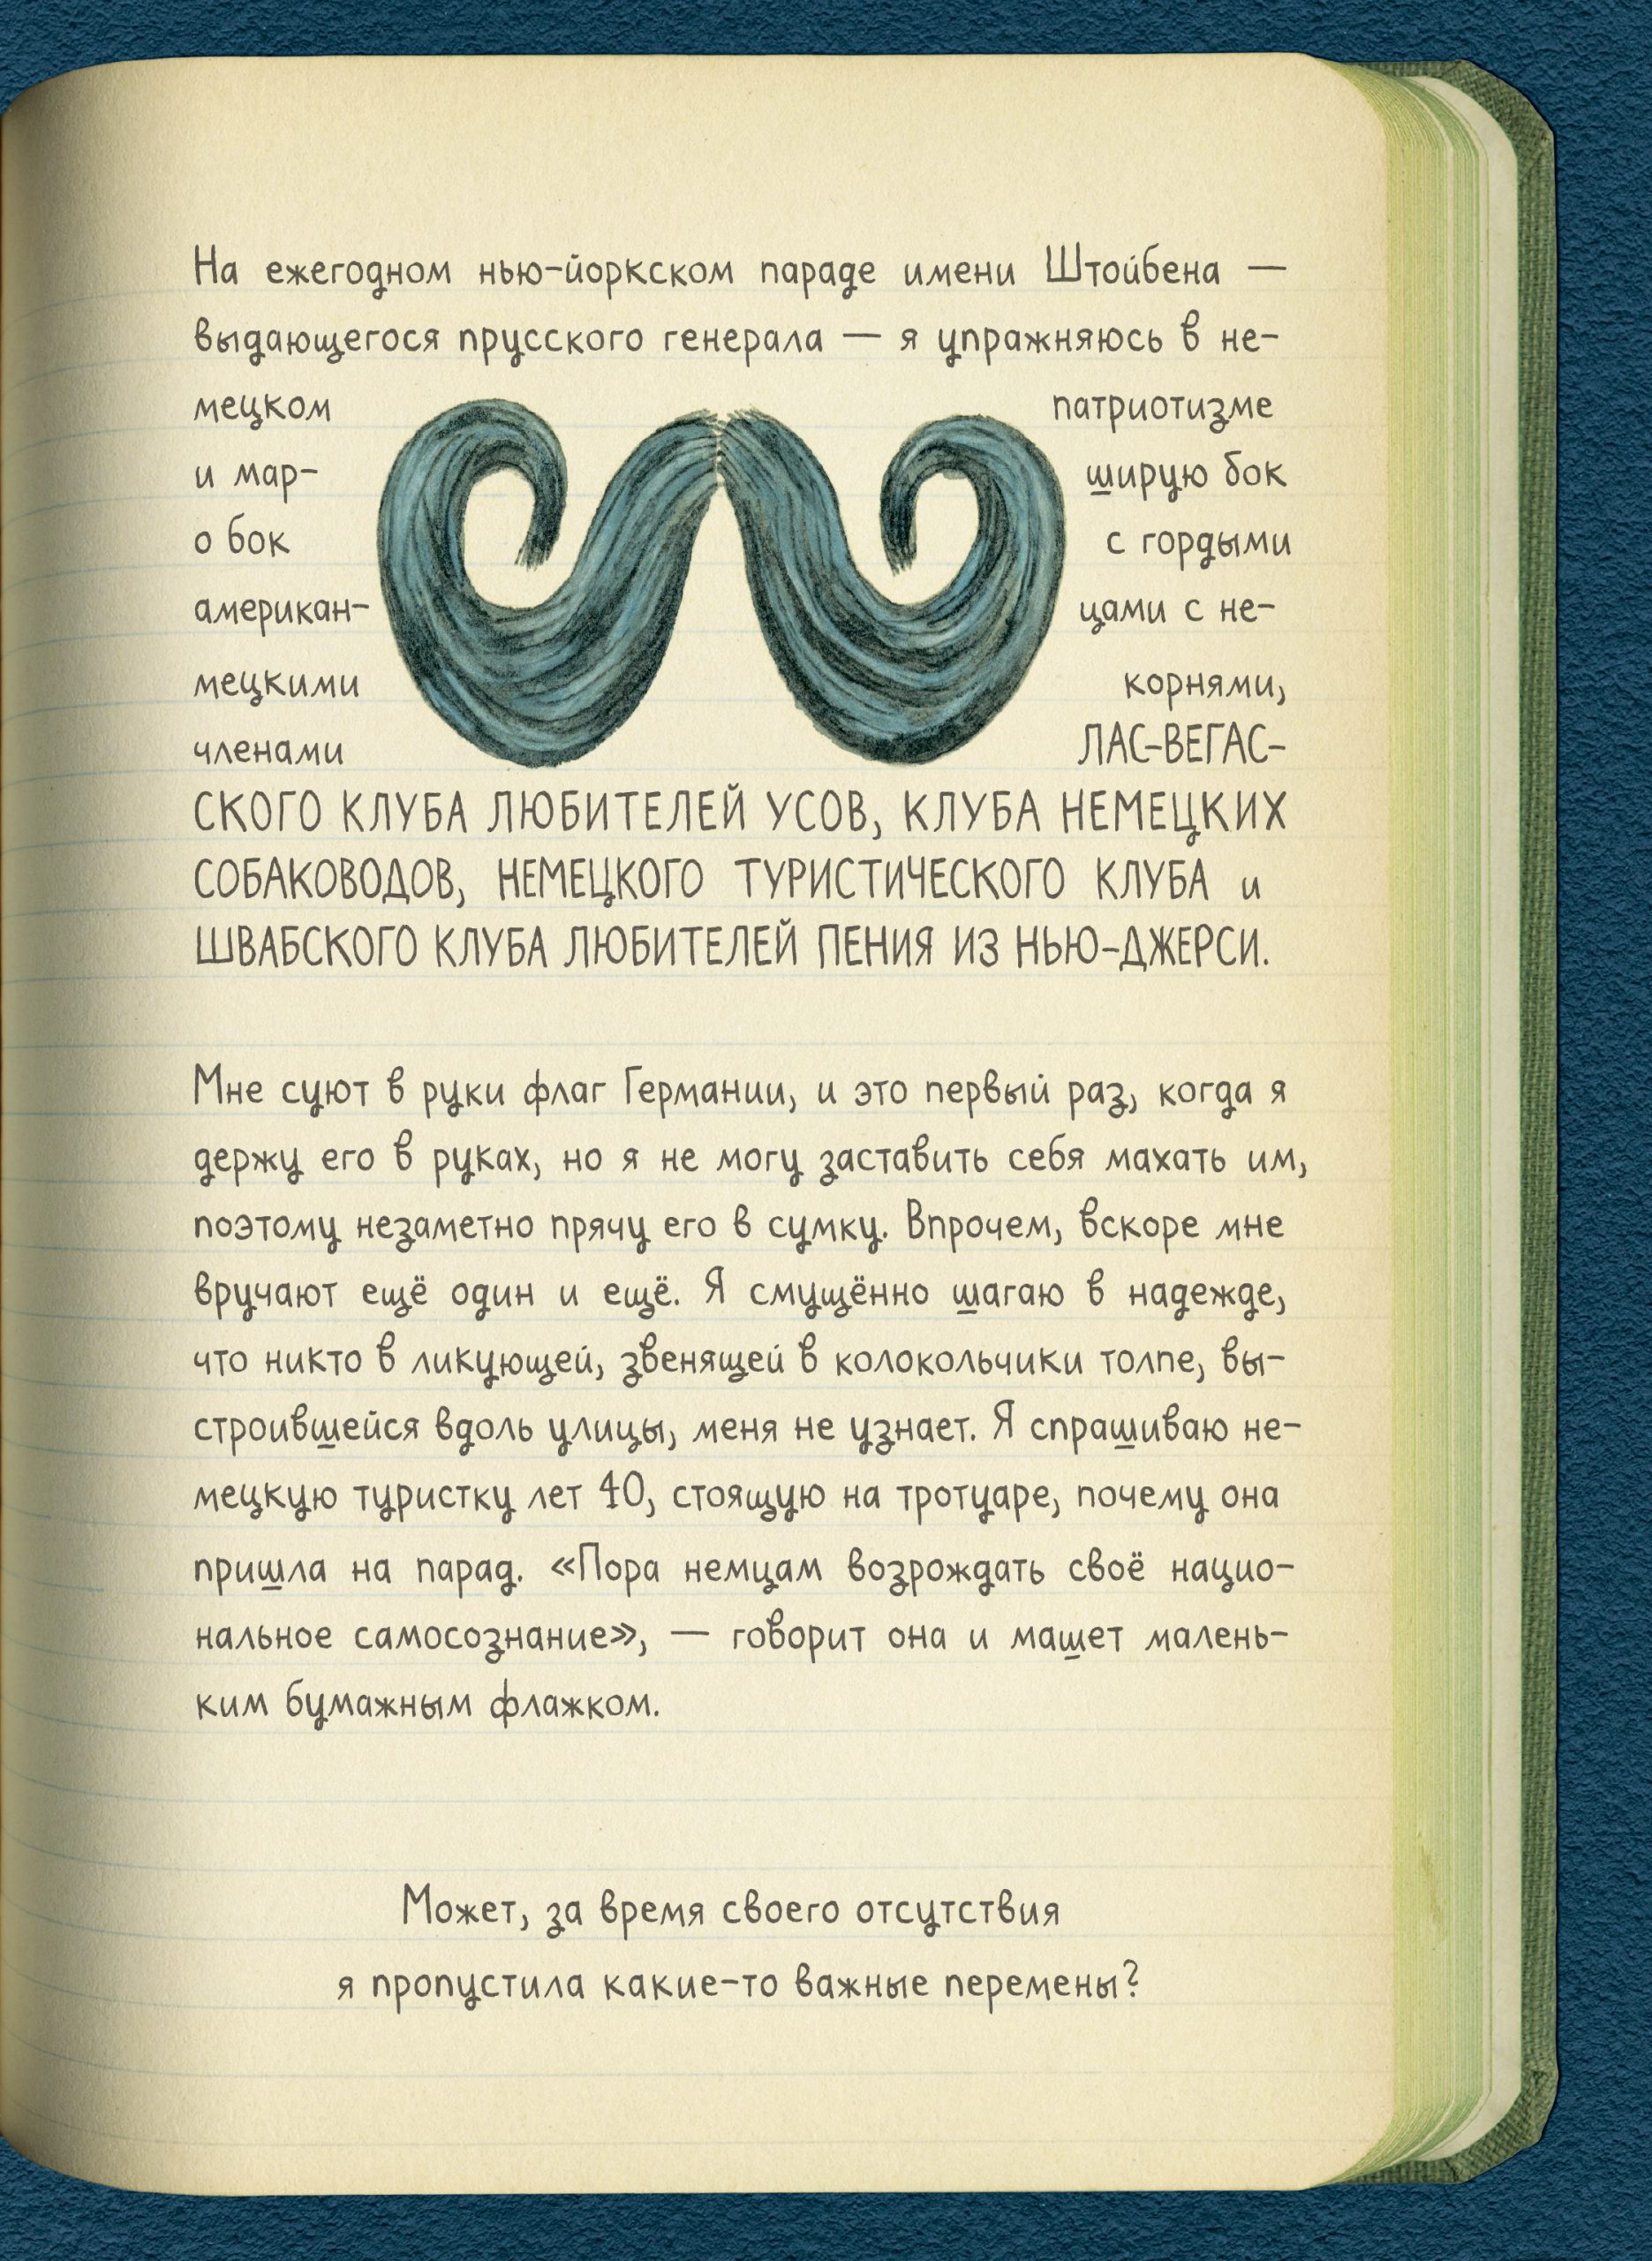 На ежегодном нью-йоркском параде имени Штойбена —
выдающегося прусского генерала — я упражняюсь в не-
мецком патриотизме
и мар- ширую бок
о бок с гордыми
американ- цами с не-
мецкими корнями,
членами ЛАС-ВЕГАС-
СКОГО КЛУБА ЛЮБИТЕЛЕЙ УСОВ, КЛУБА НЕМЕЦКИХ
СОБАКОВОДОВ, НЕМЕЦКОГО ТУРИСТИЧЕСКОГО КЛУБА и
ШВАБСКОГО КЛУБА ЛЮБИТЕЛЕЙ ПЕНИЯ ИЗ НЬЮ-ДЖЕРСИ.
Мне суют в руки флаг Германии, и это первый раз, когда я
держу его в руках, но я не могу заставить себя махать им,
поэтому незаметно прячу его в сумку. Впрочем, вскоре мне
вручают ещё один и ещё. Я смущённо шагаю в надежде,
что никто в ликующей, звенящей в колокольчики толпе, вы-
строившейся вдоль улицы, меня не узнает. Я спрашиваю не-
мецкую туристку лет 40, стоящую на тротуаре, почему она
пришла на парад. «Пора немцам возрождать своё нацио-
нальное самосознание», — говорит она и машет малень-
ким бумажным флажком.
Может, за время своего отсутствия
я пропустила какие-то важные перемены?